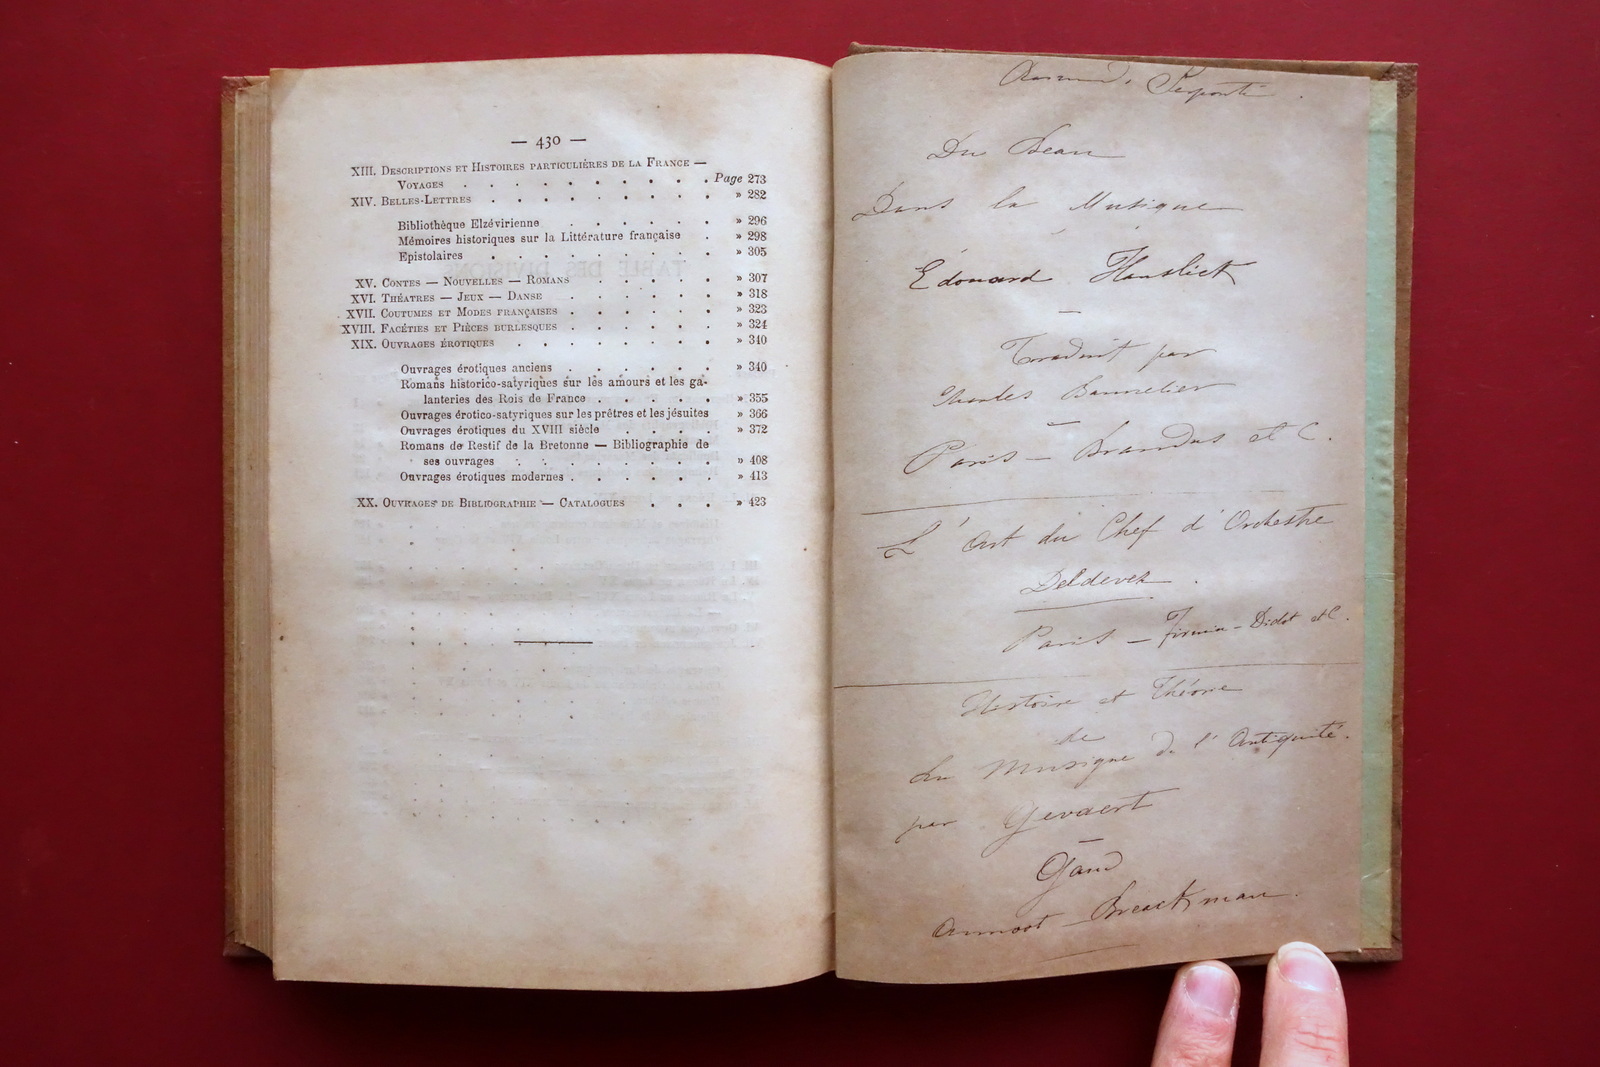 — 430 —
XIII. Descriptions et Histoires particulières de la France —
Voyages . . . . . . . . . Page 273
XIV. Belles-Lettres . . . . . . . . . » 282
Bibliothèque Elzévirienne . . . . . » 296
Mémoires historiques sur la Littérature française . » 298
Epistolaires . . . . . . . . » 305
XV. Contes — Nouvelles — Romans . . . . . » 307
XVI. Théatres — Jeux — Danse . . . . . . » 318
XVII. Coutumes et Modes françaises . . . . . . » 323
XVIII. Facéties et Pièces burlesques . . . . . . » 324
XIX. Ouvrages érotiques . . . . . . . . » 340
Ouvrages érotiques anciens . . . . . . » 340
Romans historico-satyriques sur les amours et les ga-
lanteries des Rois de France . . . . . » 355
Ouvrages érotico-satyriques sur les prêtres et les jésuites » 366
Ouvrages érotiques du XVIII siècle . . . . » 372
Romans de Restif de la Bretonne — Bibliographie de
ses ouvrages . . . . . . . . » 408
Ouvrages érotiques modernes . . . . . . » 413
XX. Ouvrages de Bibliographie — Catalogues . . . » 423
Du Beau
Dans la Musique
Édouard Hanslick
—
Traduit par
Charles Bannelier
—
Paris — Brandus et C.
L'Art du Chef d'Orchestre
Deldevez
Paris — Firmin-Didot et C.
Histoire et Théorie
de
la Musique de l'Antiquité.
par Gevaert
—
Gand
Annoot-Braeckman.